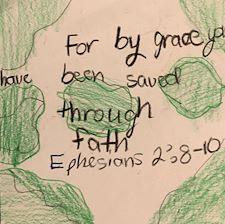 For by grace yo
have been saved
through
faith
Ephesians 2:8-10